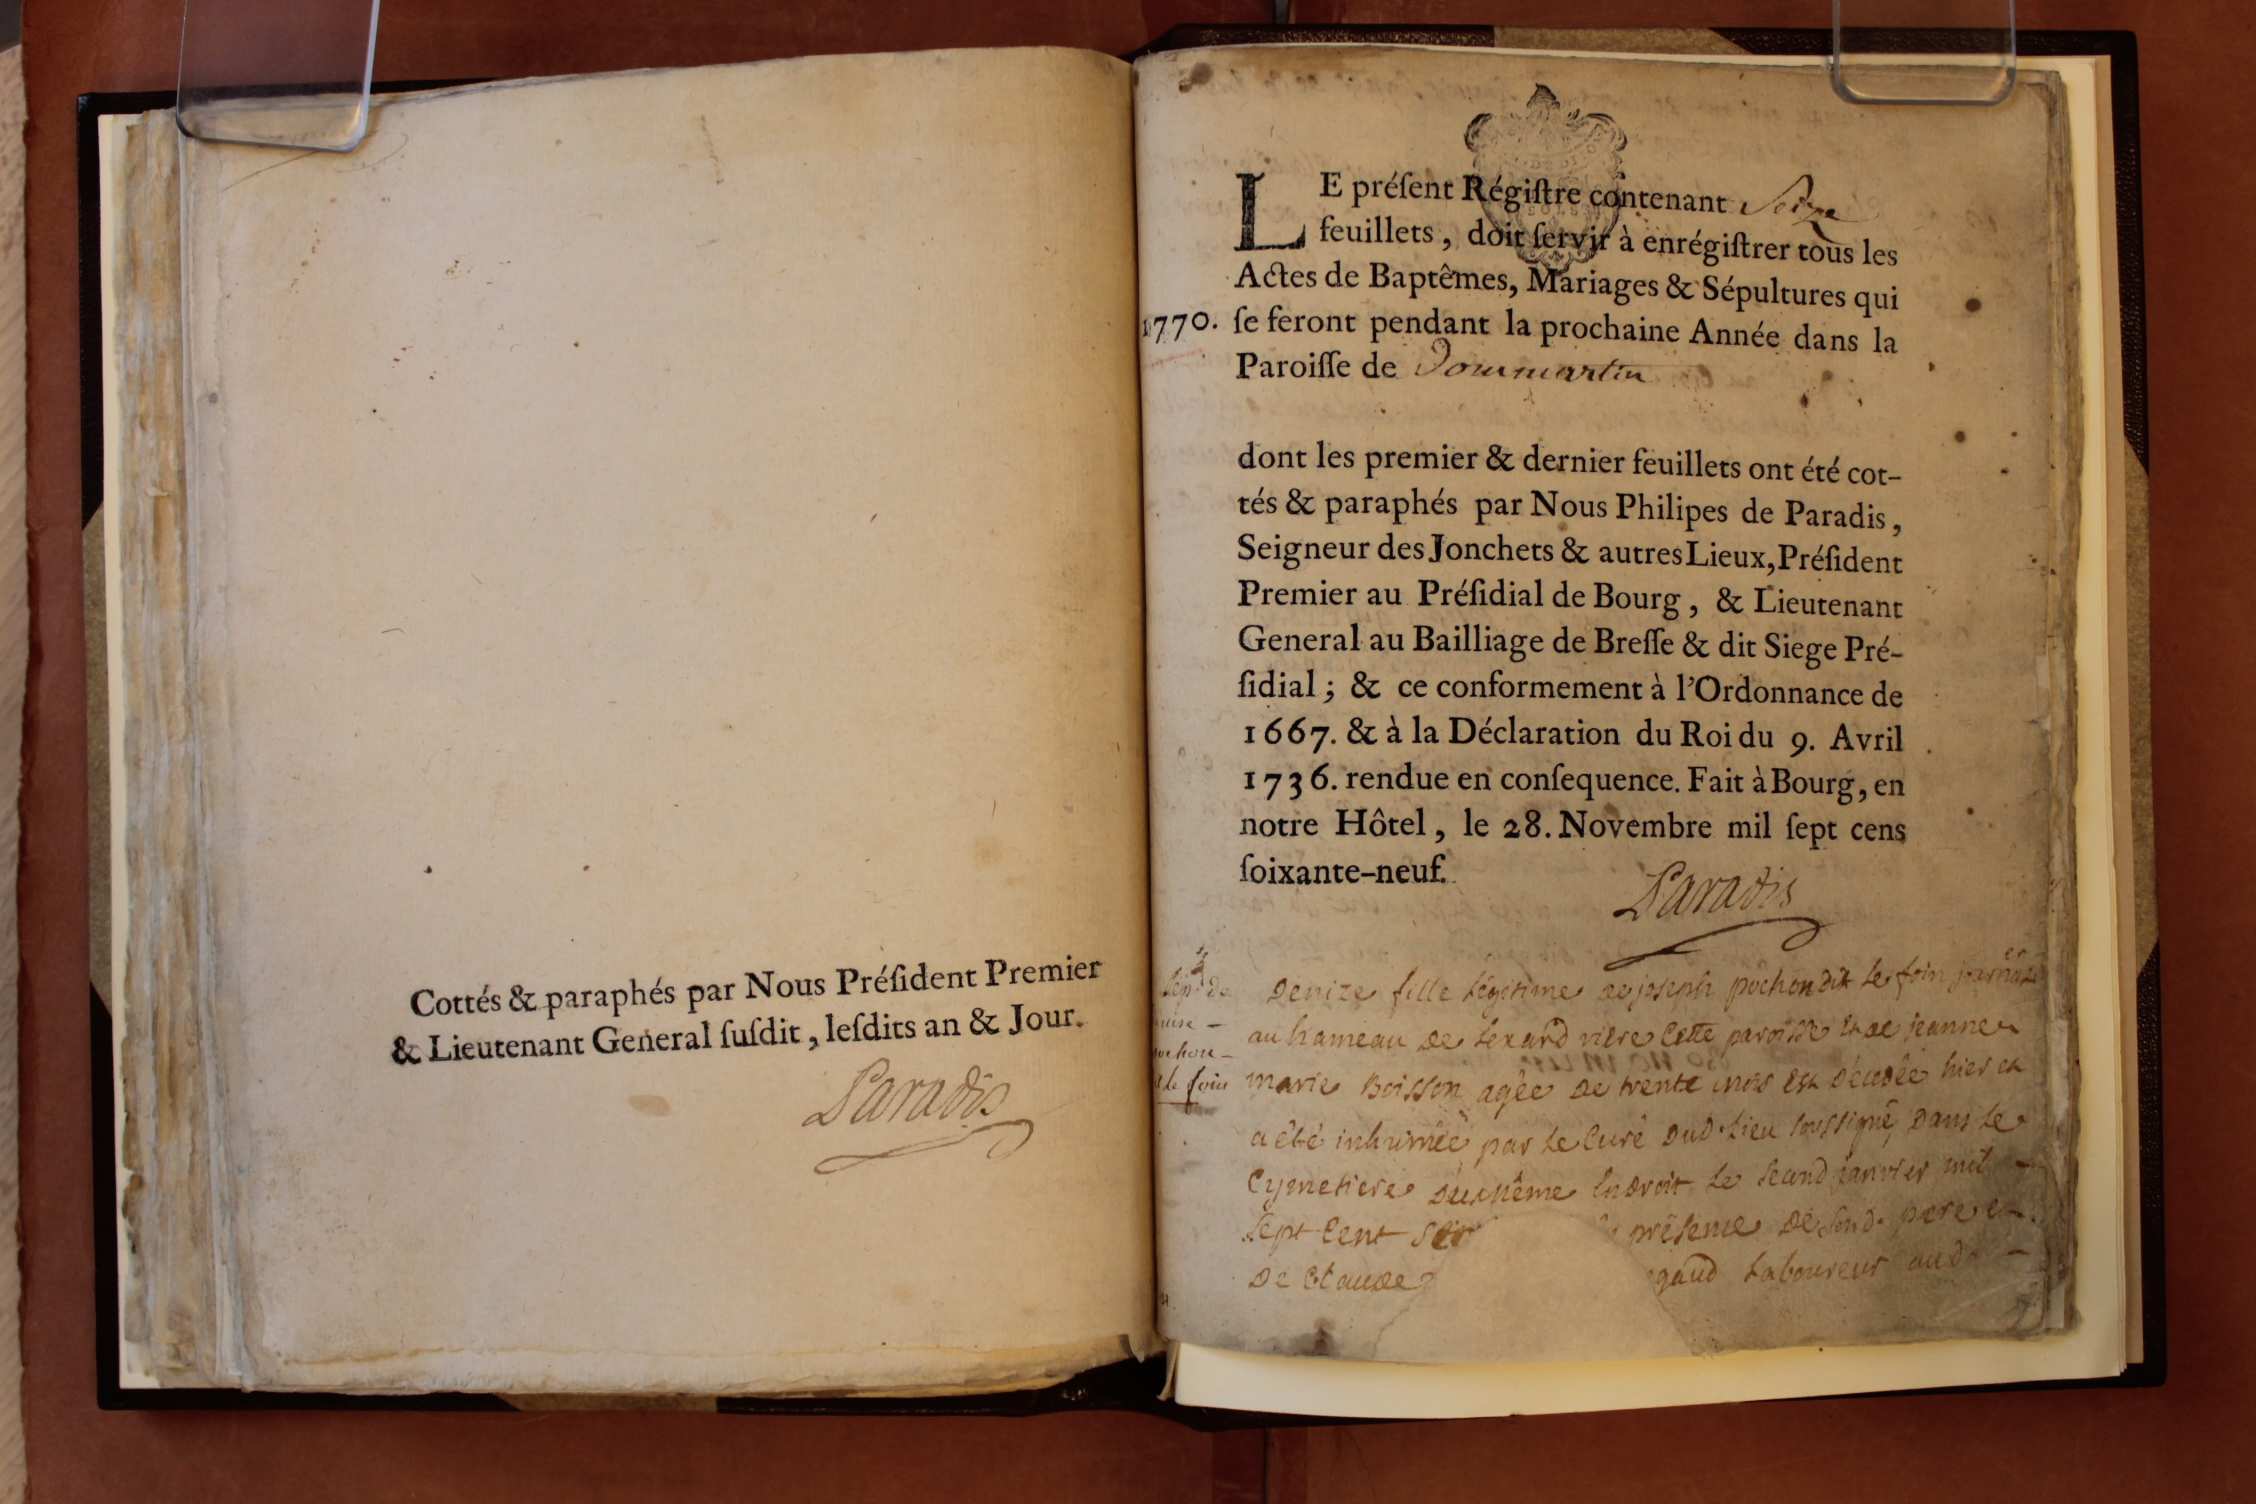 Cottés & paraphés par Nous Préſident Premier
& Lieutenant General ſuſdit, leſdits an & Jour.
Paradis
LE préſent Régiſtre contenant Seize
feuillets, doit ſervir à enrégiſtrer tous les
Actes de Baptêmes, Mariages & Sépultures qui
1770. ſe feront pendant la prochaine Année dans la
Paroiſſe de Dommartin
dont les premier & dernier feuillets ont été cot-
tés & paraphés par Nous Philipes de Paradis,
Seigneur des Jonchets & autres Lieux, Préſident
Premier au Préſidial de Bourg, & Lieutenant
General au Bailliage de Breſſe & dit Siege Pré-
ſidial; & ce conformement à l'Ordonnance de
1667. & à la Déclaration du Roi du 9. Avril
1736. rendue en conſequence. Fait à Bourg, en
notre Hôtel, le 28. Novembre mil ſept cens
ſoixante-neuf.
Paradis
le foin
Denize fille légitime de joseph pochon dit le foin
au hameau de cette paroisse et de jeanne
marie Boisson agée de trente mois est décédée hier et
a été inhumée par le Curé dud. lieu soussigné, dans le
Cymetiere du même Endroit le second janvier mil
sept Cent présence de sond. pere et
De Claude laboureur aud